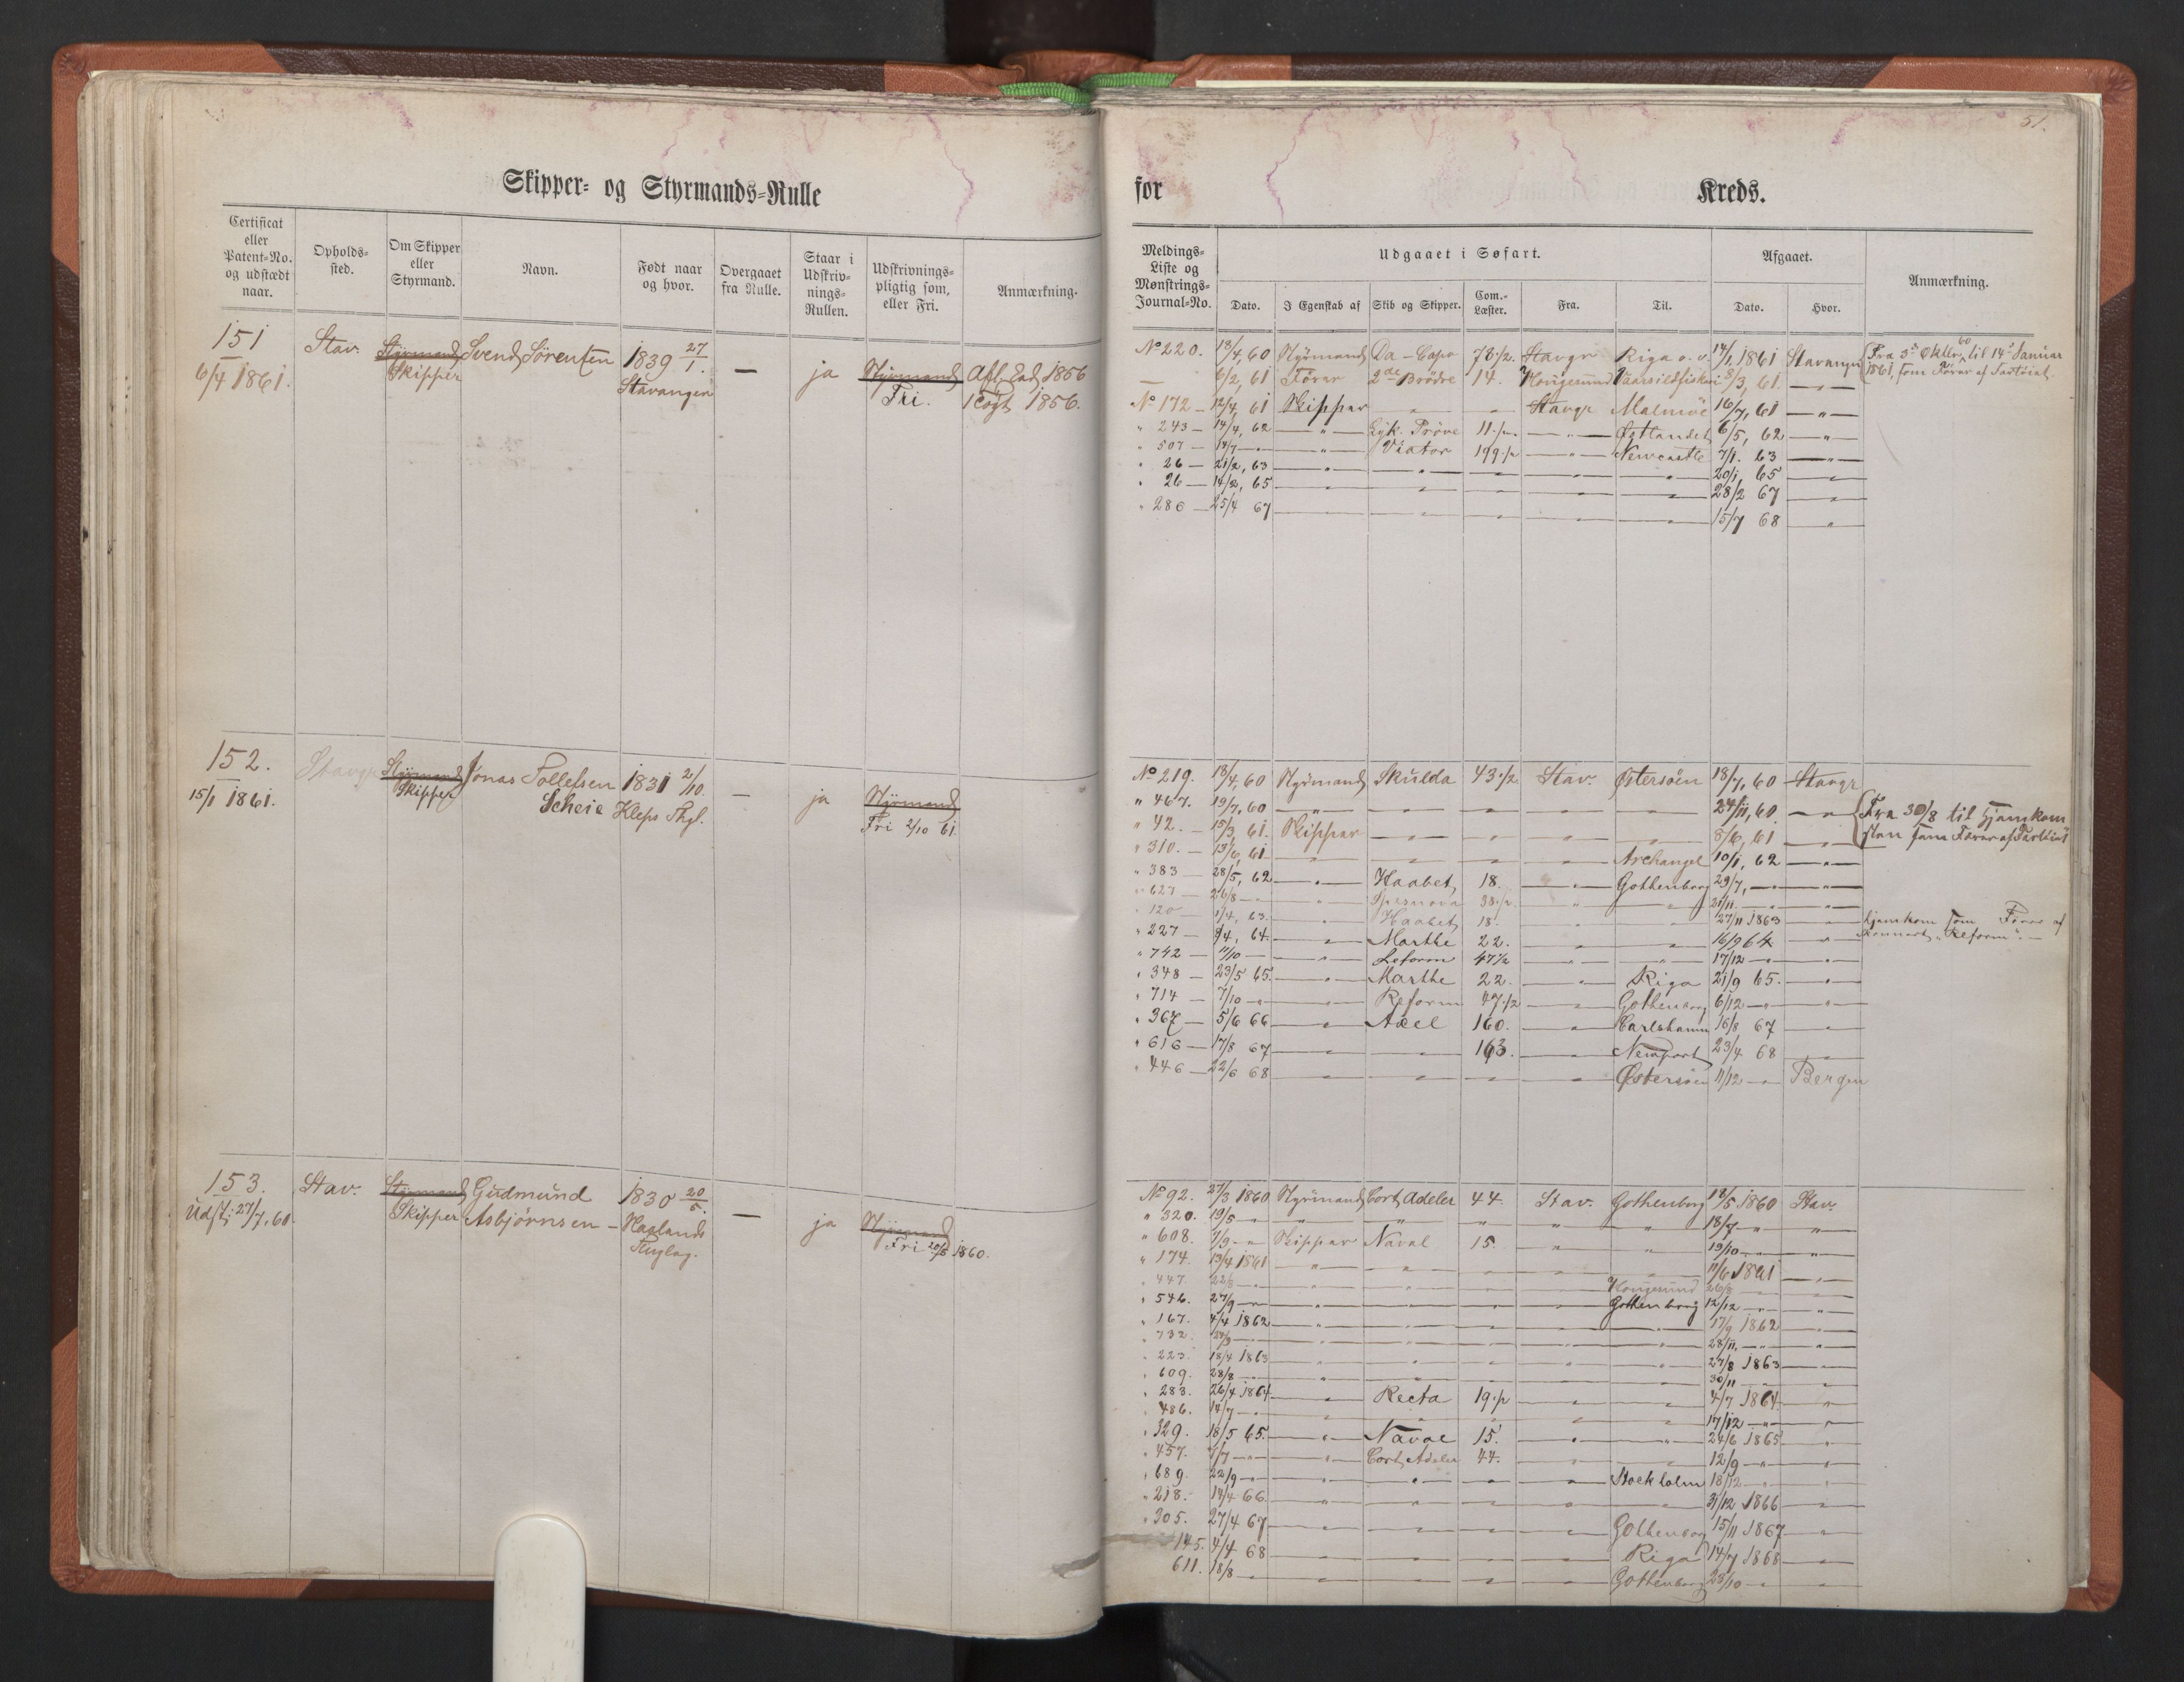 51.
Skipper- og Styrmands-Rulle
for Kreds.
Certificat eller Patent-No. og udstædt naar.
Opholds-sted.
Om Skipper eller Styrmand.
Navn.
Født naar og hvor.
Overgaaet fra Rulle.
Staar i Udskriv-nings-Rullen.
Udskrivnings-pligtig som, eller Fri.
Anmærkning.
Meldings-Liste og Mønstrings-Journal-No.
Udgaaet i Søfart.
Dato. I Egenskab af Skib og Skipper. Com.-Læster. Fra. Til.
Afgaaet.
Dato. Hvor.
Anmærkning.
151 Stav. Styrmand Svend Sörensen 1839 27/1. — ja Styrmand Afl. Ed 1856
6/4 1861. Skipper Stavanger Fri. 1 Togt 1856.
No 220. 18/4, 60 Styrmand Da-Capo 78 1/2. Stavgr Riga o. v. 14/1 1861 Stavanger Fra 5 Oktbr 60 til 14 Januar
— 6/2, 61 Förer 2de Brödre 14. Hougesund Vaarsildfiskeri 8/3, 61. — " — 1861 som Förer af Fartöiet.
No 172 — 12/4, 61 Skipper " " Stavgr Malmöe 16/7, 61 — " —
" 243 — 14/4, 62 — " — Pröve 11 1/2. — " — Østlandet 6/5, 62 — " —
" 507 — 14/7 — " — " — Viator 199 1/2 — " — Newcastle 7/1. 63 — " —
" 26 — 21/2, 63 " " " " " 20/1, 65 "
" 26 — 14/2, 65 " " " " " 28/2 67 "
" 286 — 25/4 67 " " " " " 15/7 68 "
152. Stavgr Styrmand Jonas Tollefsen 1831 2/10. — ja Styrmand
15/1 1861. Skipper Scheie Kleps Thgl. Fri 2/10 61.
No 219. 18/4, 60 Styrmand Skulda 43 1/2 Stav. Østersöen 18/7, 60 Stavgr
" 467. 19/7, 60 " " " " " 24/11, 60. — " — Fra 30/8 til Hjemkom
" 42. — 15/3, 61. Skipper " " " " 8/6, 61 " sten som Förer af Fartöiet
" 310. — 13/6, 61 " " " " Archangel 10/1, 62 — " —
" 383 — 28/5, 62 — " — Haabet 18. — " — Gothenborg 29/7, — " — " —
" 627 — 26/8 — " " Spesnova 38 1/2. " " 21/11. — " — " —
" 120 — 1/4, 63. " Haabet 18. " " 27/11 1863 " hjemkom som Förer af
" 227 — 9/4, 64. " Marthe 22. " " 16/9 64. " "Reform". —
" 742 — 11/10 — " Reform 47 1/2 " " 17/12 — " — " —
" 348 — 23/5 65. " Marthe 22. " Riga 21/9 65. "
" 714 — 7/10 — " — " Reform 47 1/2 " Gothenborg 6/12 — " — " —
" 367 — 5/6 66 " Axel 160. " Carlshamn 16/8 67 "
" 616 — 17/8 67 " " 163. " Newport 23/4 68 "
" 446 — 22/6 68 " " " " Østersöen 11/12 — " — Bergen
153. Stav. Styrmand Gudmund 1830 20/5. — ja Styrmand
Udst. 27/7, 60. Skipper Asbjörnsen — Haalands Fri 20/5 1860.
Thglag.
No 92. 27/3 1860 Styrmand Cort Adeler 44. Stav. Gothenborg 18/5 1860 Stav.
" 320. 19/5 — " " " " " " 18/7 — " "
" 608. 7/9 — " — Skipper Naval 15. " " 19/10 — " — "
" 174. 13/4 1861 " " " " " 11/6 1861 "
" 447. 22/6 — " " " " " Hougesund 26/8 " "
" 546. 27/9 — " — " " " " Gothenborg 12/12 — " — "
" 167. 4/4 1862 " " " " " 17/9 1862 "
" 732. — " " " " " " 28/11. — " — "
" 223. 18/4 1863 " " " " " 27/8 1863 "
" 609. 28/8 — " " " " " " 30/11 " "
" 283. 26/4 1864 " Recta 19 1/2 " " 4/7 1864. "
" 486. 14/7 — " " " " " " 17/12 — " — "
" 329. 18/5 65. " Naval 15. " " 24/6 1865 "
" 457. 7/7 — " — " Cort Adeler 44. " " 12/9 — " — "
" 689. 22/9 — " — " " " " Stockholm 18/12 " "
" 218. 14/4 66. " " " " " 31/12 1866 "
" 305. 27/4 67 " " " " Gothenborg 15/11 1867 "
145. 4/4 68 " " " " Riga 14/7 1868 "
611. 18/8 — " " " " " Gothenborg 28/10 — " — "